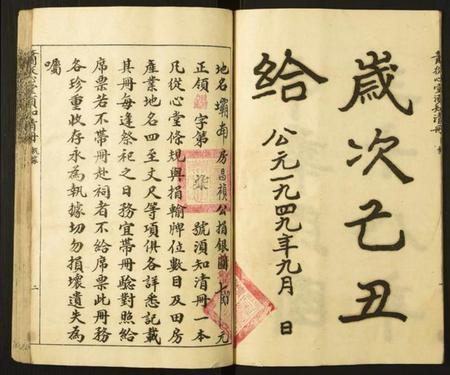 歲次己丑
給
公元一九四九年九月 日
地名壩南房昌禎公捐銀圓七元
正領 字第 號須知清冊一本
凡從心堂條規與捐輸牌位數目及田房
產業地名四至丈尺等項俱各詳悉記載
其冊每逢祭祀之日務宜帶冊驗對照給
席票若不帶冊赴祠者不給席票此冊務
各珍重收存永為執據切勿損壞遺失為
囑
二